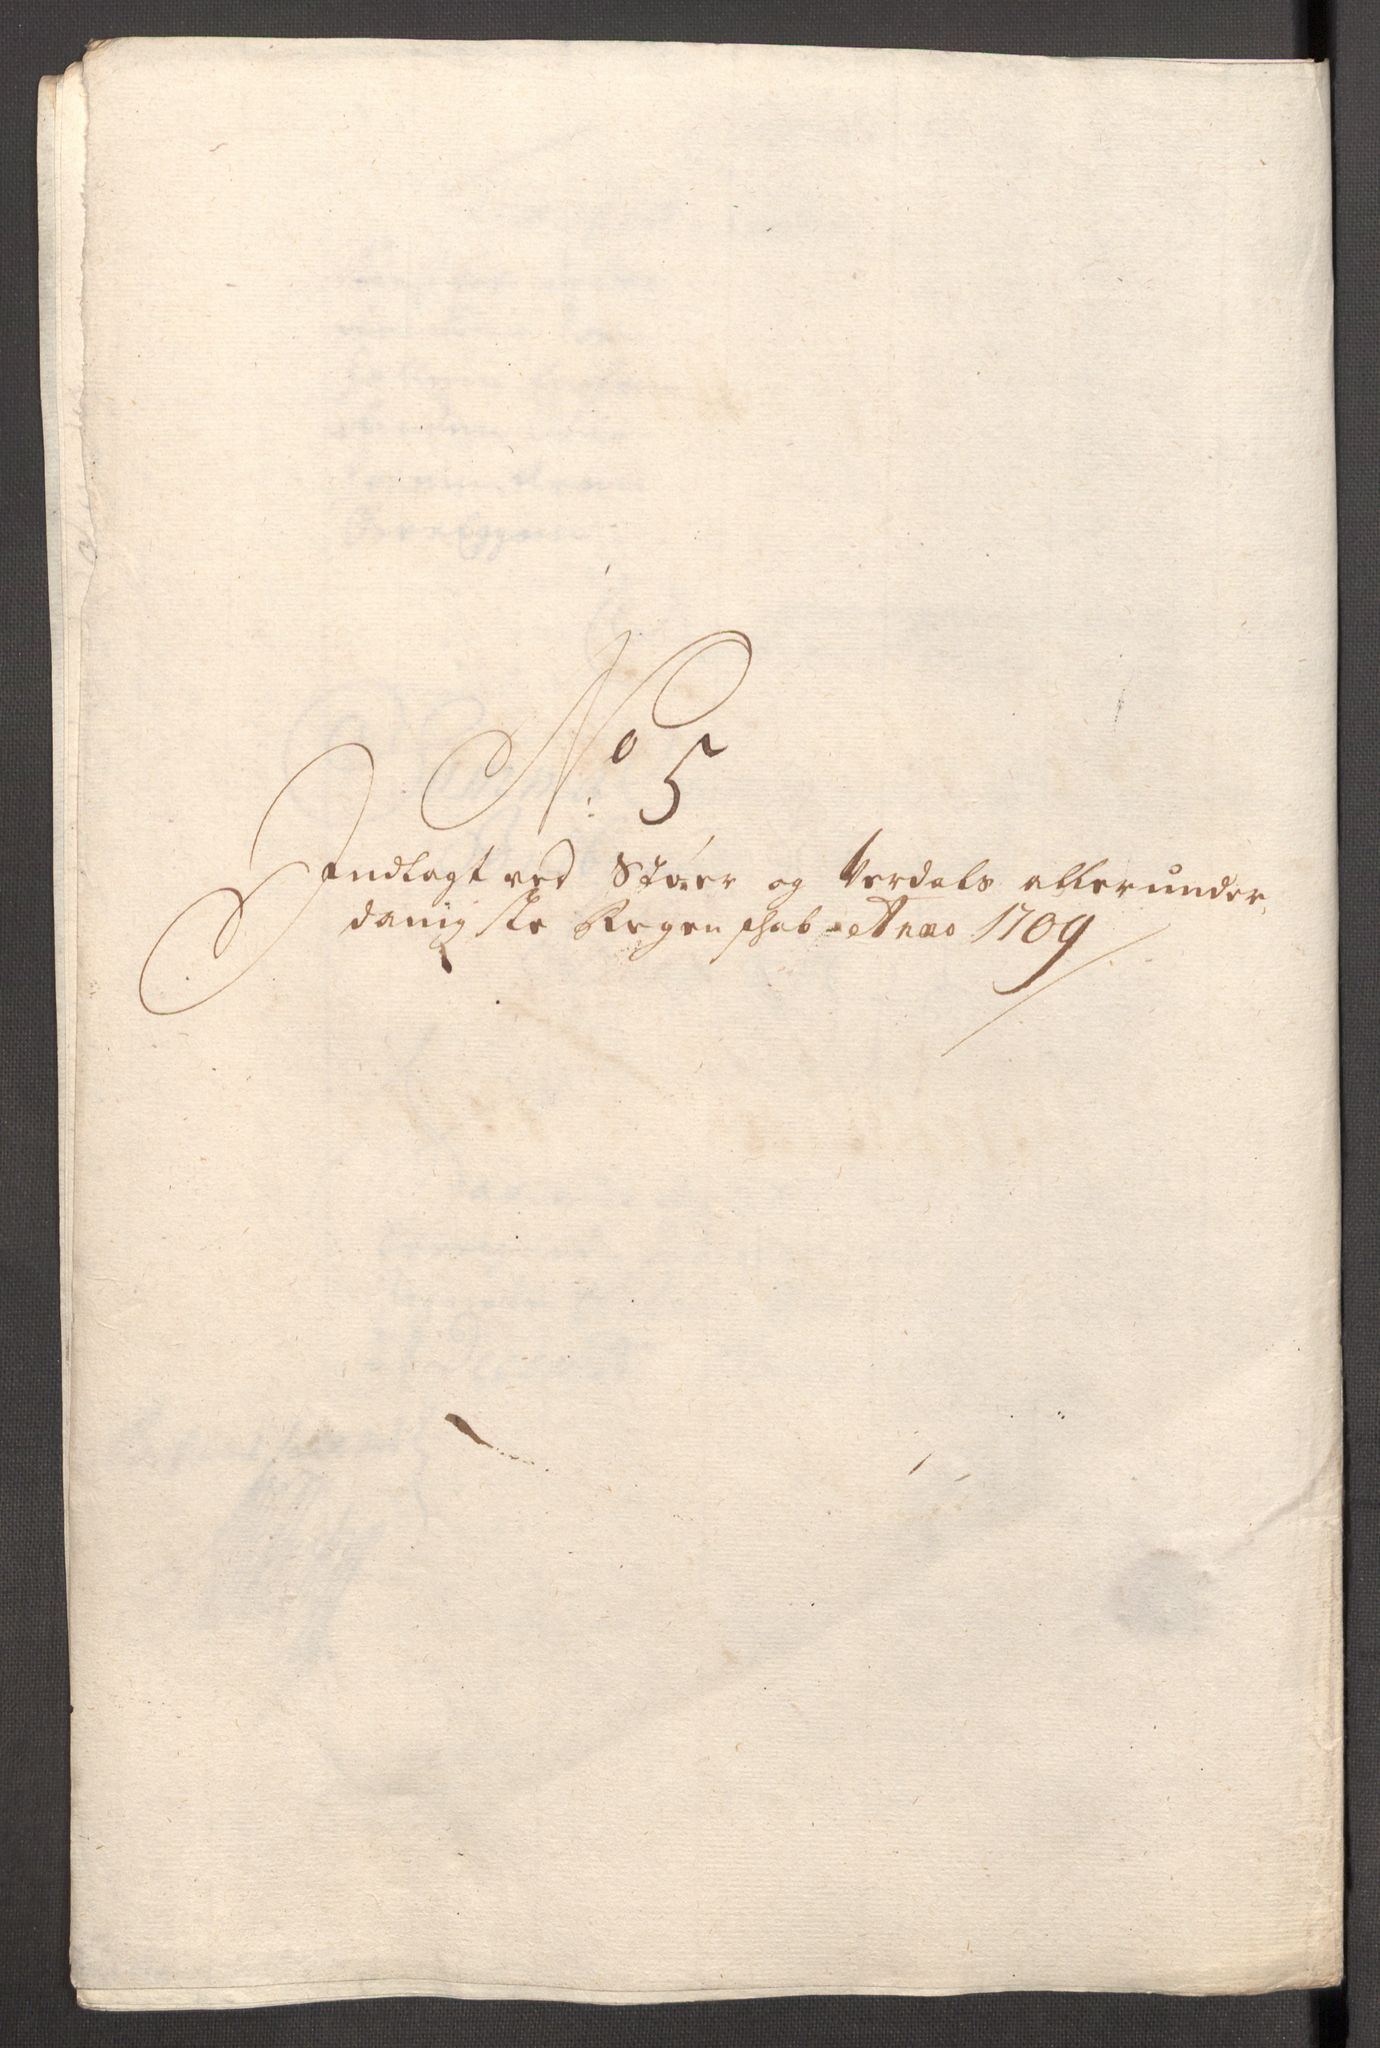 No 5
Indlagt ved Støer og Verdals allerunder
danigste Regenschab Anno 1709